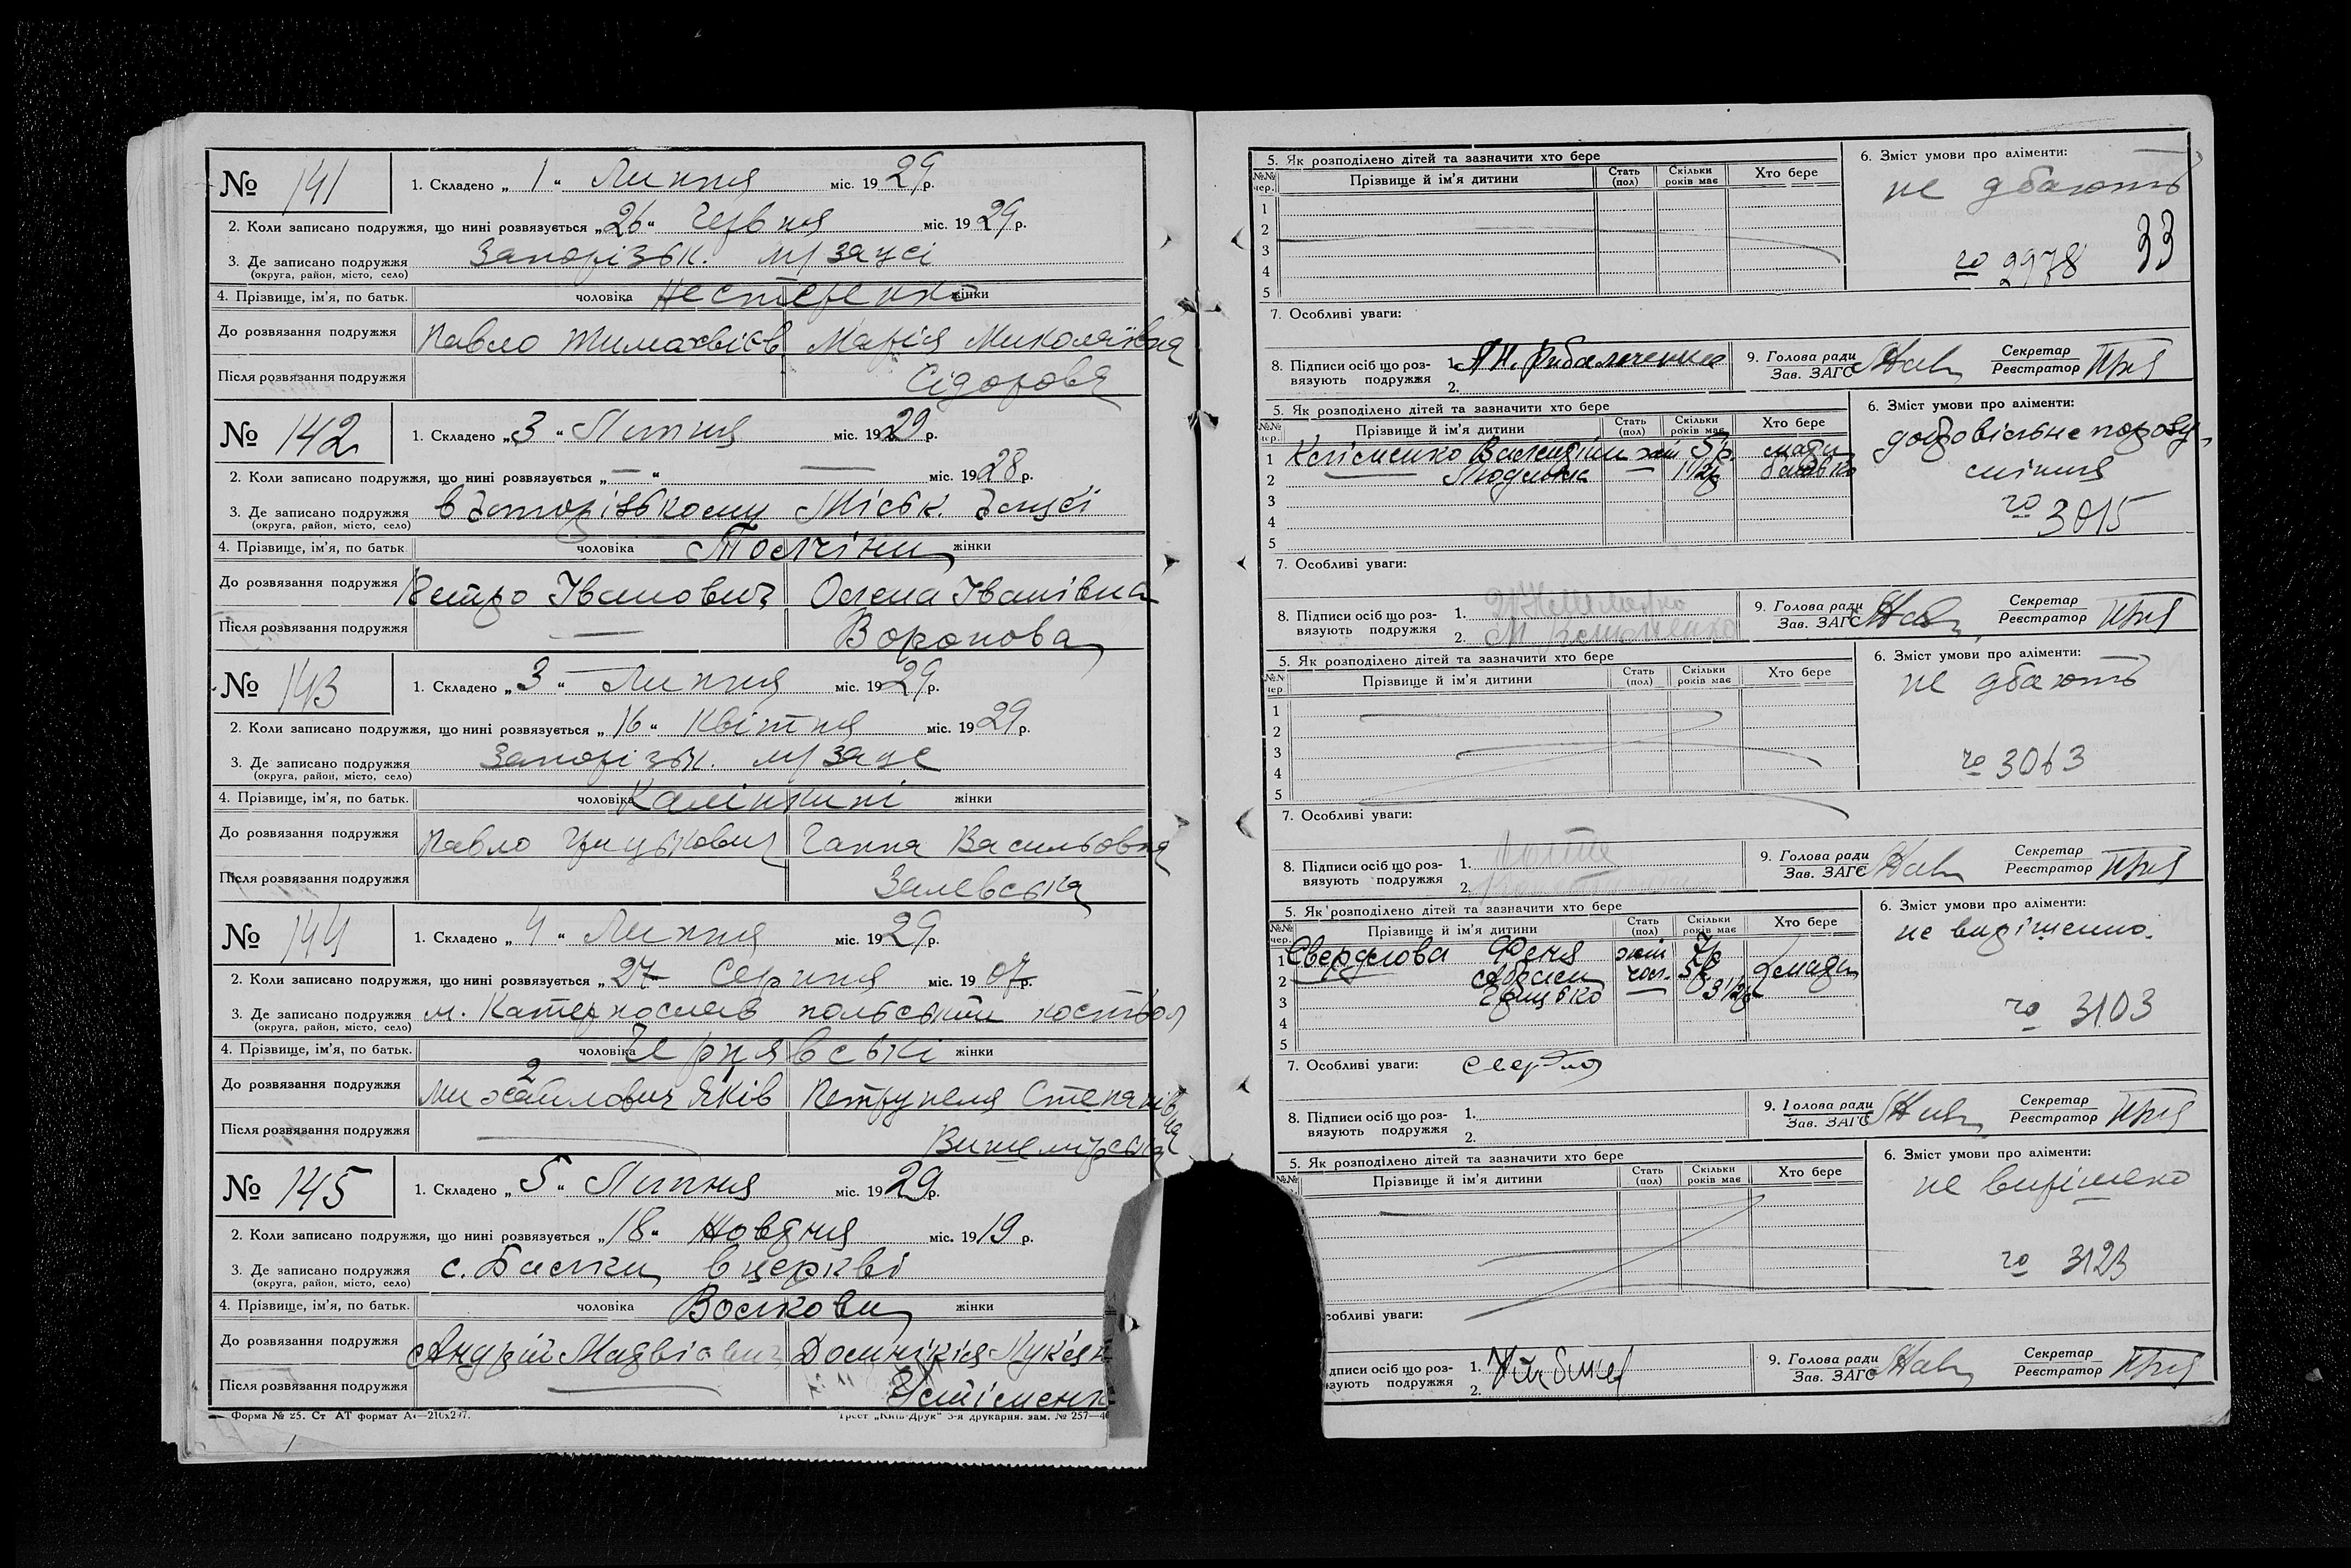 № 141
1. Складено „ 1 “ Липня міс. 1929 р.
2. Коли записано подружжя, що нині розвязується „ 26 “ Червня міс. 1929 р.
3. Де записано подружжя Запорізьк. м/загсі
(округа, район, місто, село)
4. Прізвище, ім'я, по батьк. чоловіка Нестеренко жінки
До розвязання подружжя Павло Тимахвієв Марія Миколаївна
Після розвязання подружжя Сідорова
№ 142
1. Складено „ 3 “ Липня міс. 1929 р.
2. Коли записано подружжя, що нині розвязується „ — “ — міс. 1928 р.
3. Де записано подружжя в Запорізькому Міськ. Загсі
(округа, район, місто, село)
4. Прізвище, ім'я, по батьк. чоловіка Толчіни жінки
До розвязання подружжя Петро Іванович Олена Іванівна
Після розвязання подружжя — Воронова
№ 143
1. Складено „ 3 “ Липня міс. 1929 р.
2. Коли записано подружжя, що нині розвязується „ 16 “ Квітня міс. 1929 р.
3. Де записано подружжя Запорізьк. м/загс
(округа, район, місто, село)
4. Прізвище, ім'я, по батьк. чоловіка Калінкині жінки
До розвязання подружжя Павло Ганна Васильовна
Після розвязання подружжя Залевська
№ 144
1. Складено „ 4 “ Липня міс. 1929 р.
2. Коли записано подружжя, що нині розвязується „ 27 “ Серпня міс. 1907 р.
3. Де записано подружжя м. Катеринослав польський костьол
(округа, район, місто, село)
4. Прізвище, ім'я, по батьк. чоловіка Чернявські жінки
До розвязання подружжя Михайлович Яків Петрунеля Степанівна
Після розвязання подружжя —
№ 145
1. Складено „ 5 “ Липня міс. 1929 р.
2. Коли записано подружжя, що нині розвязується „ 18 “ Жовтня міс. 1919 р.
3. Де записано подружжя с. Балки в церкві
(округа, район, місто, село)
4. Прізвище, ім'я, по батьк. чоловіка Волкови жінки
До розвязання подружжя Андрій Матвієвич Домнікія Лук'ян
Після розвязання подружжя — Устіменк
Форма № 25. Ст АТ формат А4—210х297. Трест „Київ-Друк“ 3-я друкарня. зам. № 257—4
5. Як розподілено дітей та зазначити хто бере
№№ чер. Прізвище й ім'я дитини Стать (пол) Скільки років має Хто бере
1
2
3
4
5
6. Зміст умови про аліменти:
не дбають
33
го 2978
7. Особливі уваги:
8. Підписи осіб що розвязують подружжя 1. 2.
9. Голова ради Зав. ЗАГС Секретар Реєстратор
5. Як розподілено дітей та зазначити хто бере
№№ чер. Прізвище й ім'я дитини Стать (пол) Скільки років має Хто бере
1 Клісменко Валентін 5 р. мати
2 Людмила — 1 1/2 батько
3
4
5
6. Зміст умови про аліменти:
добровільне порозу-
міння
го 3015
7. Особливі уваги:
8. Підписи осіб що розвязують подружжя 1. 2.
9. Голова ради Зав. ЗАГС Секретар Реєстратор
5. Як розподілено дітей та зазначити хто бере
№№ чер. Прізвище й ім'я дитини Стать (пол) Скільки років має Хто бере
1
2
3
4
5
6. Зміст умови про аліменти:
не дбають
го 3063
7. Особливі уваги:
8. Підписи осіб що розвязують подружжя 1. 2.
9. Голова ради Зав. ЗАГС Секретар Реєстратор
5. Як розподілено дітей та зазначити хто бере
№№ чер. Прізвище й ім'я дитини Стать (пол) Скільки років має Хто бере
1 Свердлова Феня жін 7 р
2 Абрам чол. 5 р мати
3 Грицько — 3 1/2
4
5
6. Зміст умови про аліменти:
не вирішенно.
го 3103
7. Особливі уваги:
8. Підписи осіб що розвязують подружжя 1. 2.
9. Голова ради Зав. ЗАГС Секретар Реєстратор
5. Як розподілено дітей та зазначити хто бере
№№ Прізвище й ім'я дитини Стать (пол) Скільки років має Хто бере
6. Зміст умови про аліменти:
не вирішено
го 3123
собливі уваги:
дписи осіб що роззують подружжя 1. 2.
9. Голова ради Зав. ЗАГС Секретар Реєстратор